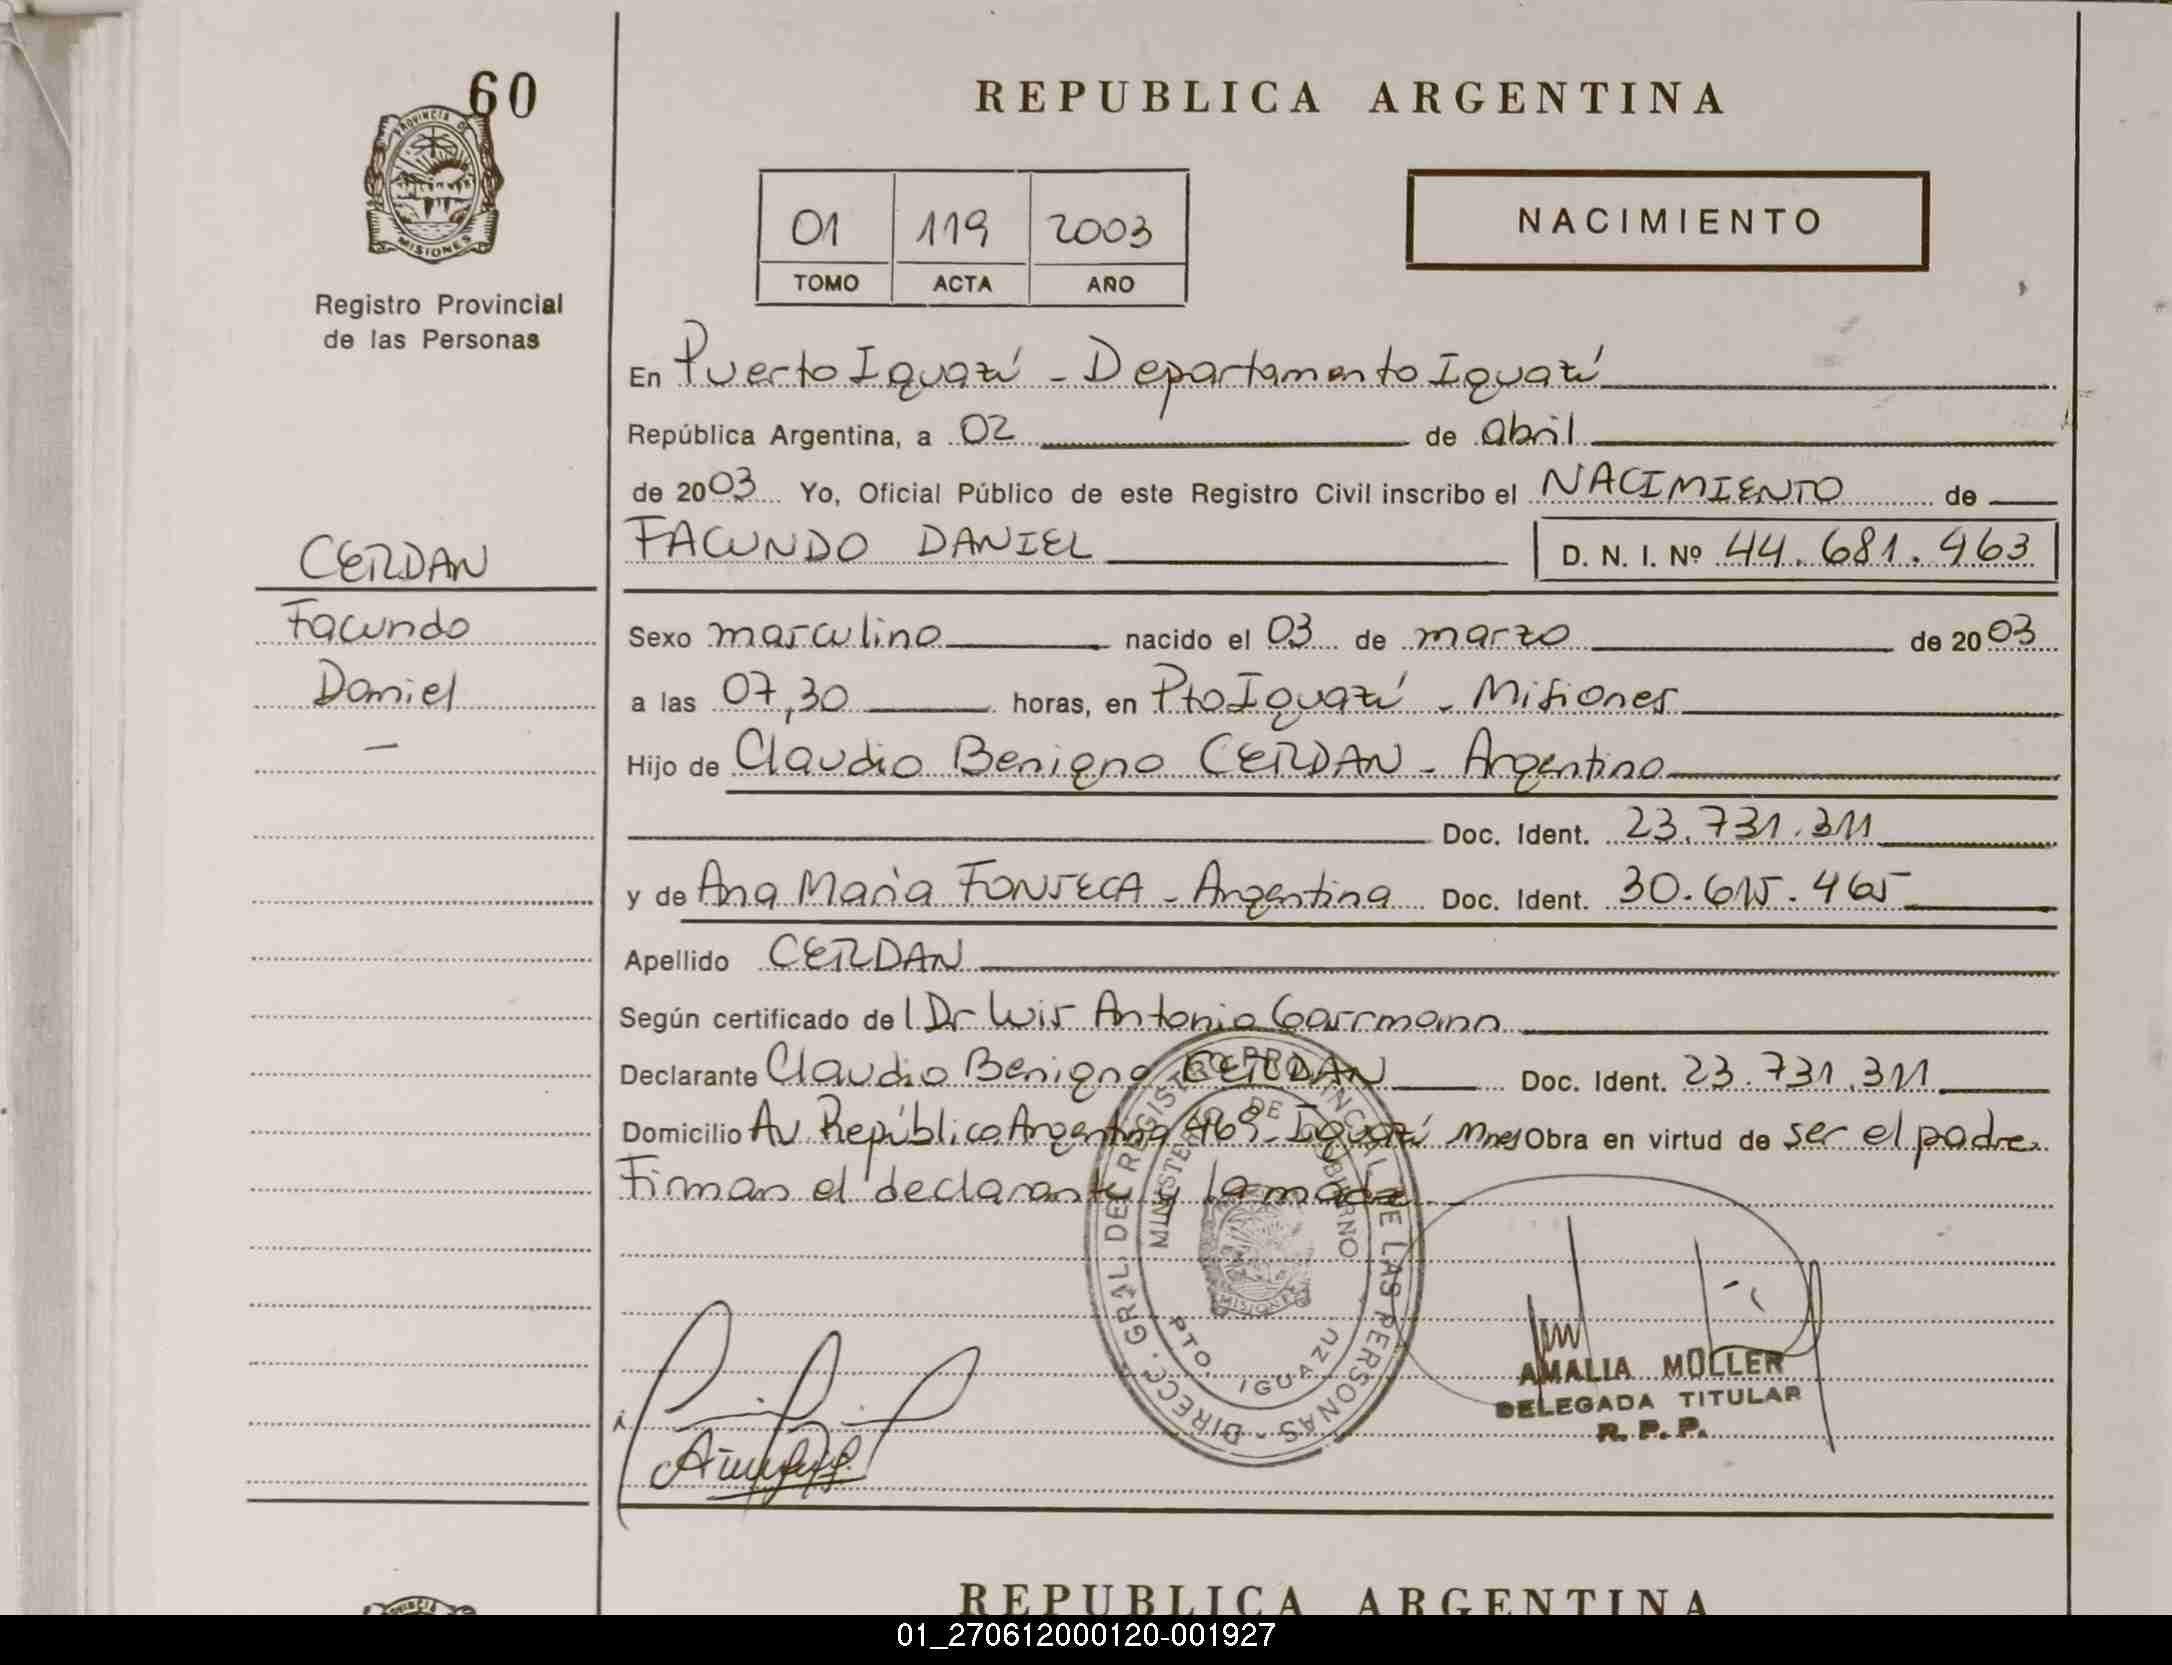 60
PROVINCIA DE
MISIONES
Registro Provincial
de las Personas
CERDAN
Facundo
Daniel
—
REPUBLICA ARGENTINA
01 119 2003
TOMO ACTA AÑO
NACIMIENTO
En Puerto Iguazú - Departamento Iguazú
República Argentina, a 02 de abril
de 2003 Yo, Oficial Público de este Registro Civil inscribo el NACIMIENTO de
FACUNDO DANIEL D. N. I. Nº 44.681.463
Sexo masculino nacido el 03 de marzo de 2003
a las 07,30 horas, en Pto Iguazú - Misiones
Hijo de Claudio Benigno CERDAN - Argentino
Doc. Ident. 23.731.311
y de Ana María FONSECA - Argentina Doc. Ident. 30.615.465
Apellido CERDAN
Según certificado de l Dr Luis Antonio
Declarante Claudio Benigno CERDAN Doc. Ident. 23.731.311
Domicilio Av República Argentina 469 - Iguazú Mnes Obra en virtud de ser el padre
Firman el declarante y la madre
DIRECC. GRAL. DEL REGISTRO PROVINCIAL DE LAS PERSONAS -
MINISTERIO DE GOBIERNO
MISIONES
PTO. IGUAZU
AMALIA MÜLLER
DELEGADA TITULAR
R. P. P.
PROVINCIA
REPUBLICA ARGENTINA
01_270612000120-001927